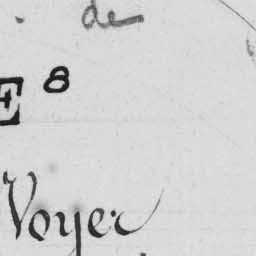 de
E 8
Voyer